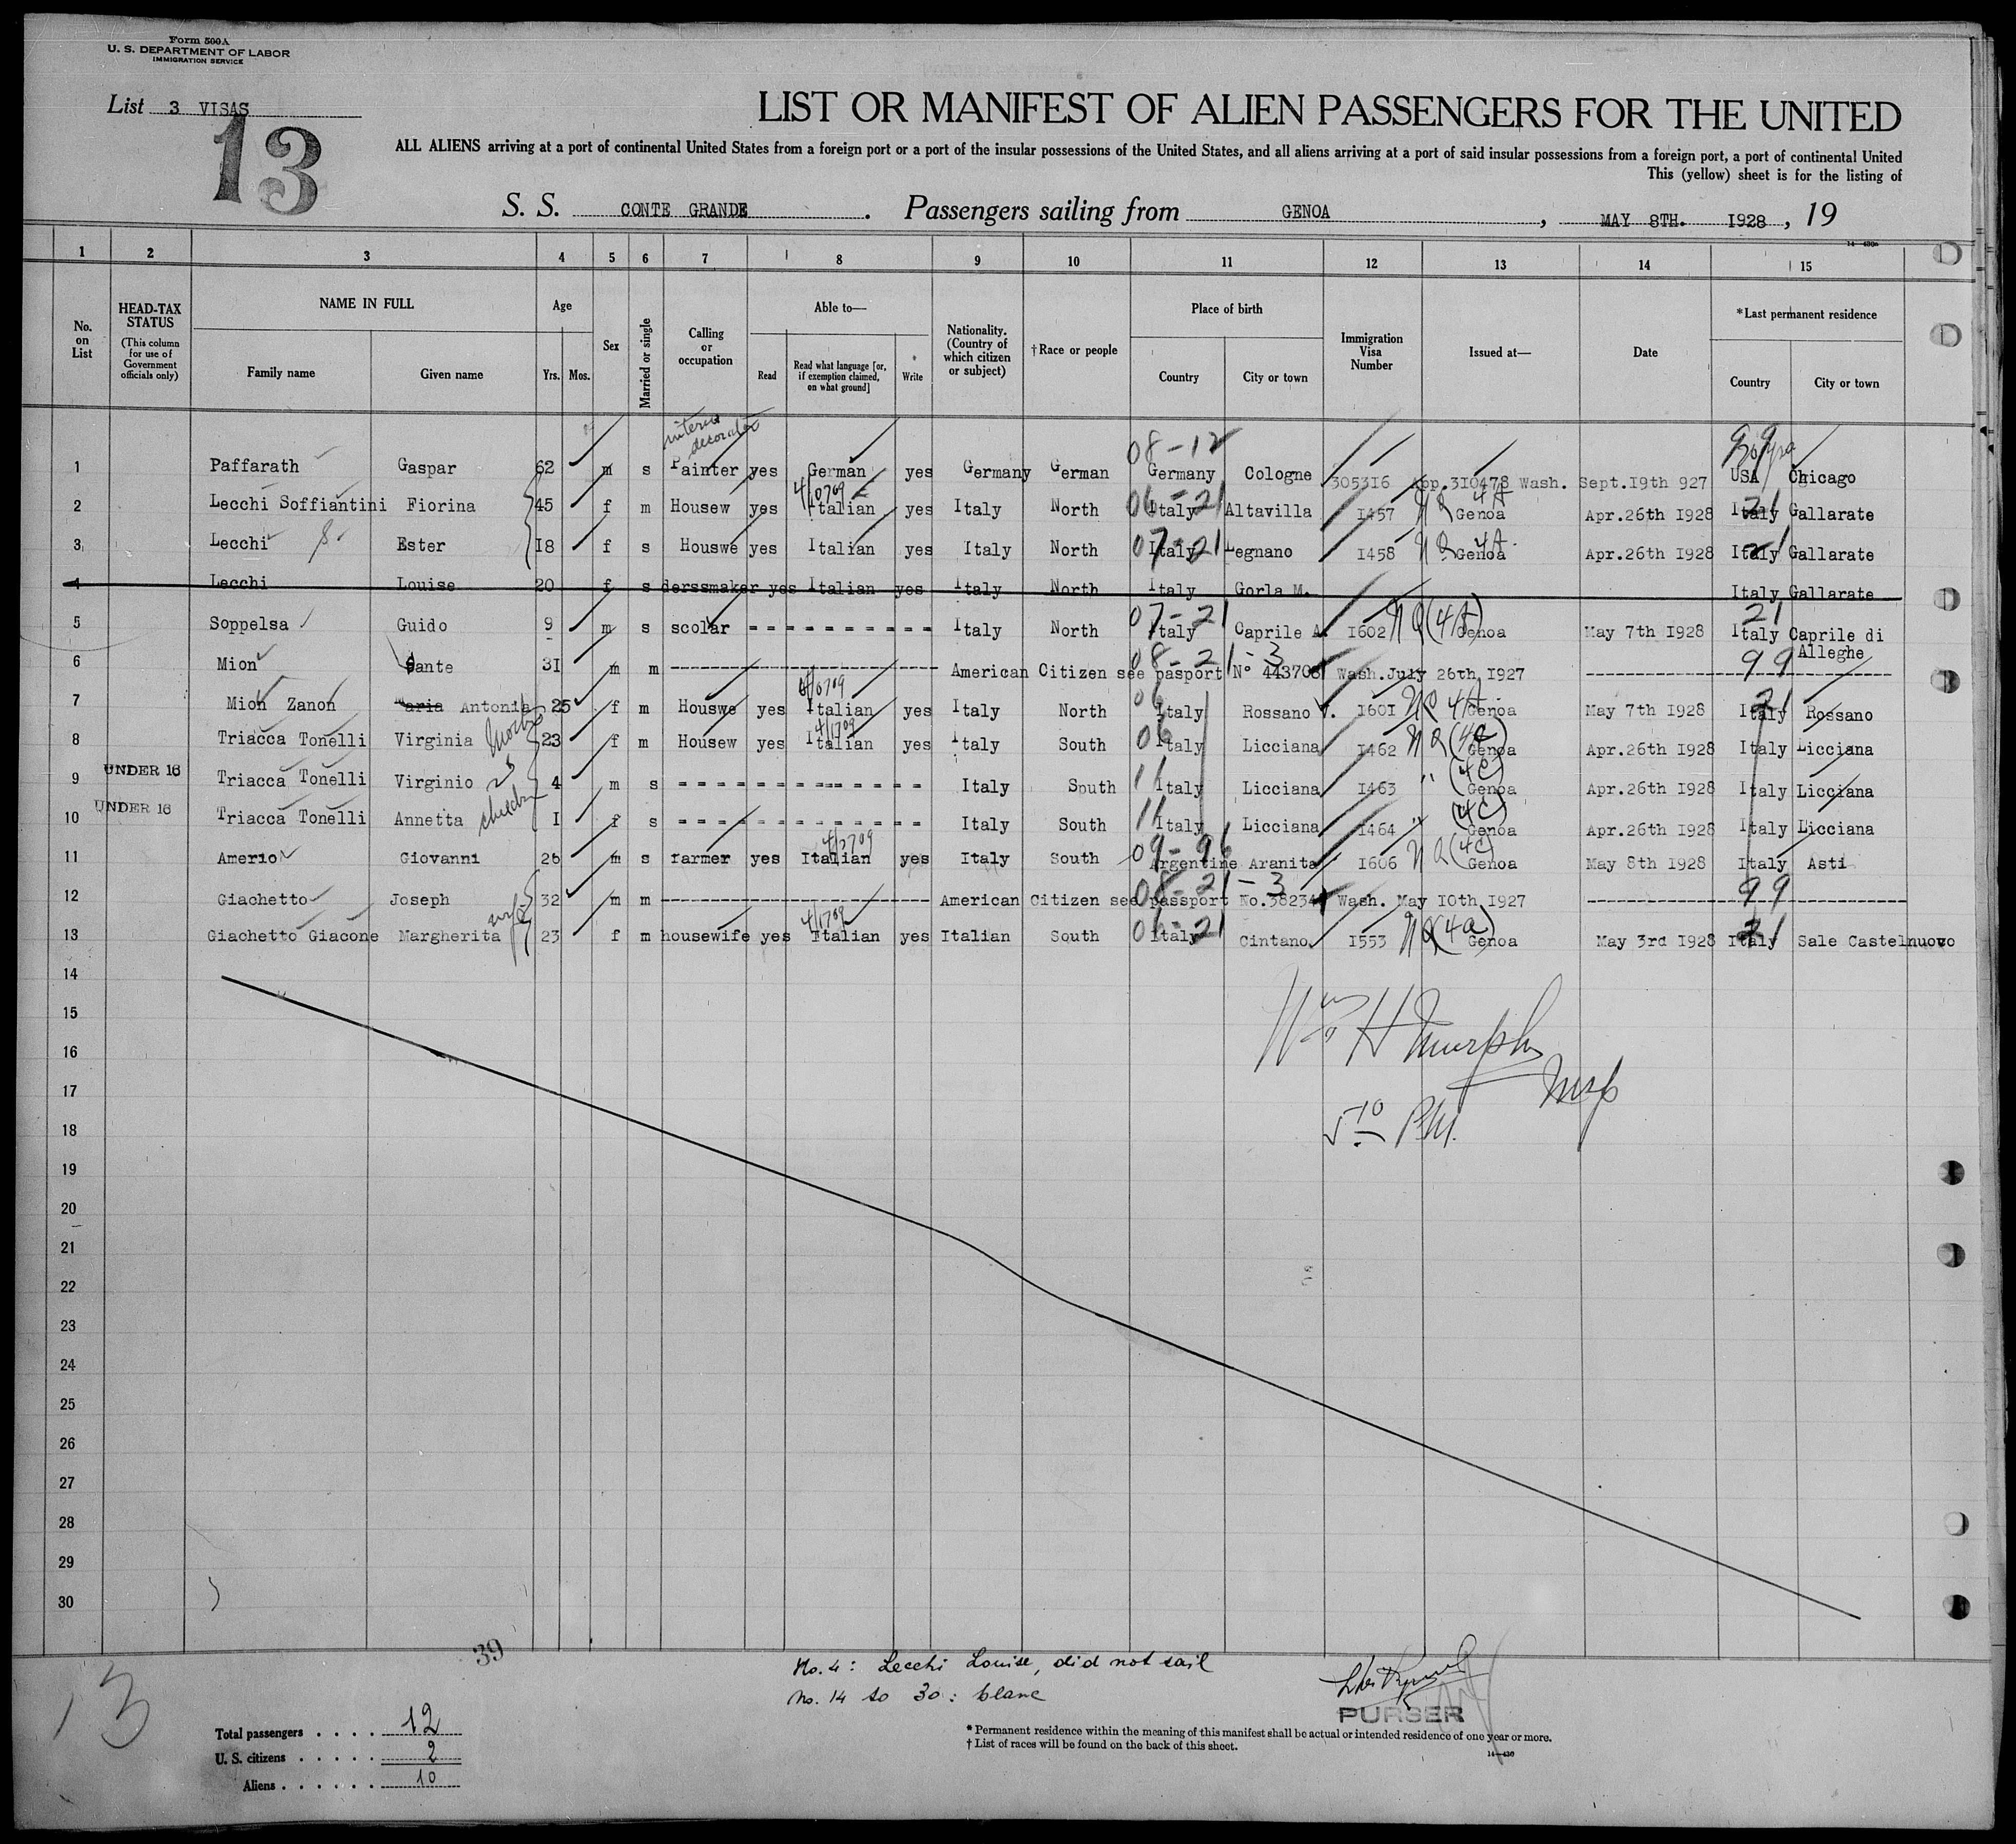 Form 500A
U. S. DEPARTMENT OF LABOR
IMMIGRATION SERVICE
List 3 VISAS
13
LIST OR MANIFEST OF ALIEN PASSENGERS FOR THE UNITED
ALL ALIENS arriving at a port of continental United States from a foreign port or a port of the insular possessions of the United States, and all aliens arriving at a port of said insular possessions from a foreign port, a port of continental United
This (yellow) sheet is for the listing of
S. S. CONTE GRANDE. Passengers sailing from GENOA, MAY 8TH. 1928, 19
1 2 3 4 5 6 7 8 9 10 11 12 13 14 15
No. on List
HEAD-TAX STATUS (This column for use of Government officials only)
NAME IN FULL Family name Given name
Age Yrs. Mos.
Sex
Married or single
Calling or occupation
Able to— Read Read what language [or, if exemption claimed, on what ground] Write
Nationality. (Country of which citizen or subject)
†Race or people
Place of birth Country City or town
Immigration Visa Number
Issued at—
Date
*Last permanent residence Country City or town
interior decorator 08-12 99
1 Paffarath Gaspar 62 m s Painter yes German yes Germany German Germany Cologne 305316 App.310478 Wash. Sept.19th 927 USA Chicago
2 Lecchi Soffiantini Fiorina 45 f m Housew yes Italian yes Italy North Italy Altavilla 1457 Genoa Apr.26th 1928 Italy Gallarate
3 Lecchi Ester 18 f s Houswe yes Italian yes Italy North Italy Legnano 1458 Genoa Apr.26th 1928 Italy Gallarate
4 Lecchi Louise 20 f s derssmaker yes Italian yes Italy North Italy Gorla M. Italy Gallarate
5 Soppelsa Guido 9 m s scolar Italy North Italy Caprile A. 1602 Genoa May 7th 1928 Italy Caprile di Alleghe
6 Mion Sante 31 m m American Citizen see pasport N° 443708 Wash.July 26th 1927 99
7 Mion Zanon Maria Antonia 25 f m Houswe yes Italian yes Italy North Italy Rossano V. 1601 Genoa May 7th 1928 Italy Rossano
8 Triacca Tonelli Virginia 23 f m Housew yes Italian yes Italy South Italy Licciana 1462 Genoa Apr.26th 1928 Italy Licciana
9 UNDER 16 Triacca Tonelli Virginio 4 m s Italy South Italy Licciana 1463 Genoa Apr.26th 1928 Italy Licciana
10 UNDER 16 Triacca Tonelli Annetta 1 f s Italy South Italy Licciana 1464 Genoa Apr.26th 1928 Italy Licciana
11 Amerio Giovanni 26 m s farmer yes Italian yes Italy South Argentine Aranita 1606 Genoa May 8th 1928 Italy Asti
12 Giachetto Joseph 32 m m American Citizen see passport No.38234 Wash. May 10th 1927 99
13 Giachetto Giacone Margherita wife 23 f m housewife yes Italian yes Italian South Italy Cintano 1553 Genoa May 3rd 1928 Italy Sale Castelnuovo
14
15
16
17
18
19
20
21
22
23
24
25
26
27
28
29
30
Wm H Murphy
Insp
39
No. 4: Lecchi Louise, did not sail
No. 14 to 30: blanc
PURSER
13
Total passengers . . . . 12
U. S. citizens . . . . . 2
Aliens . . . . . . 10
* Permanent residence within the meaning of this manifest shall be actual or intended residence of one year or more.
† List of races will be found on the back of this sheet.
14—430